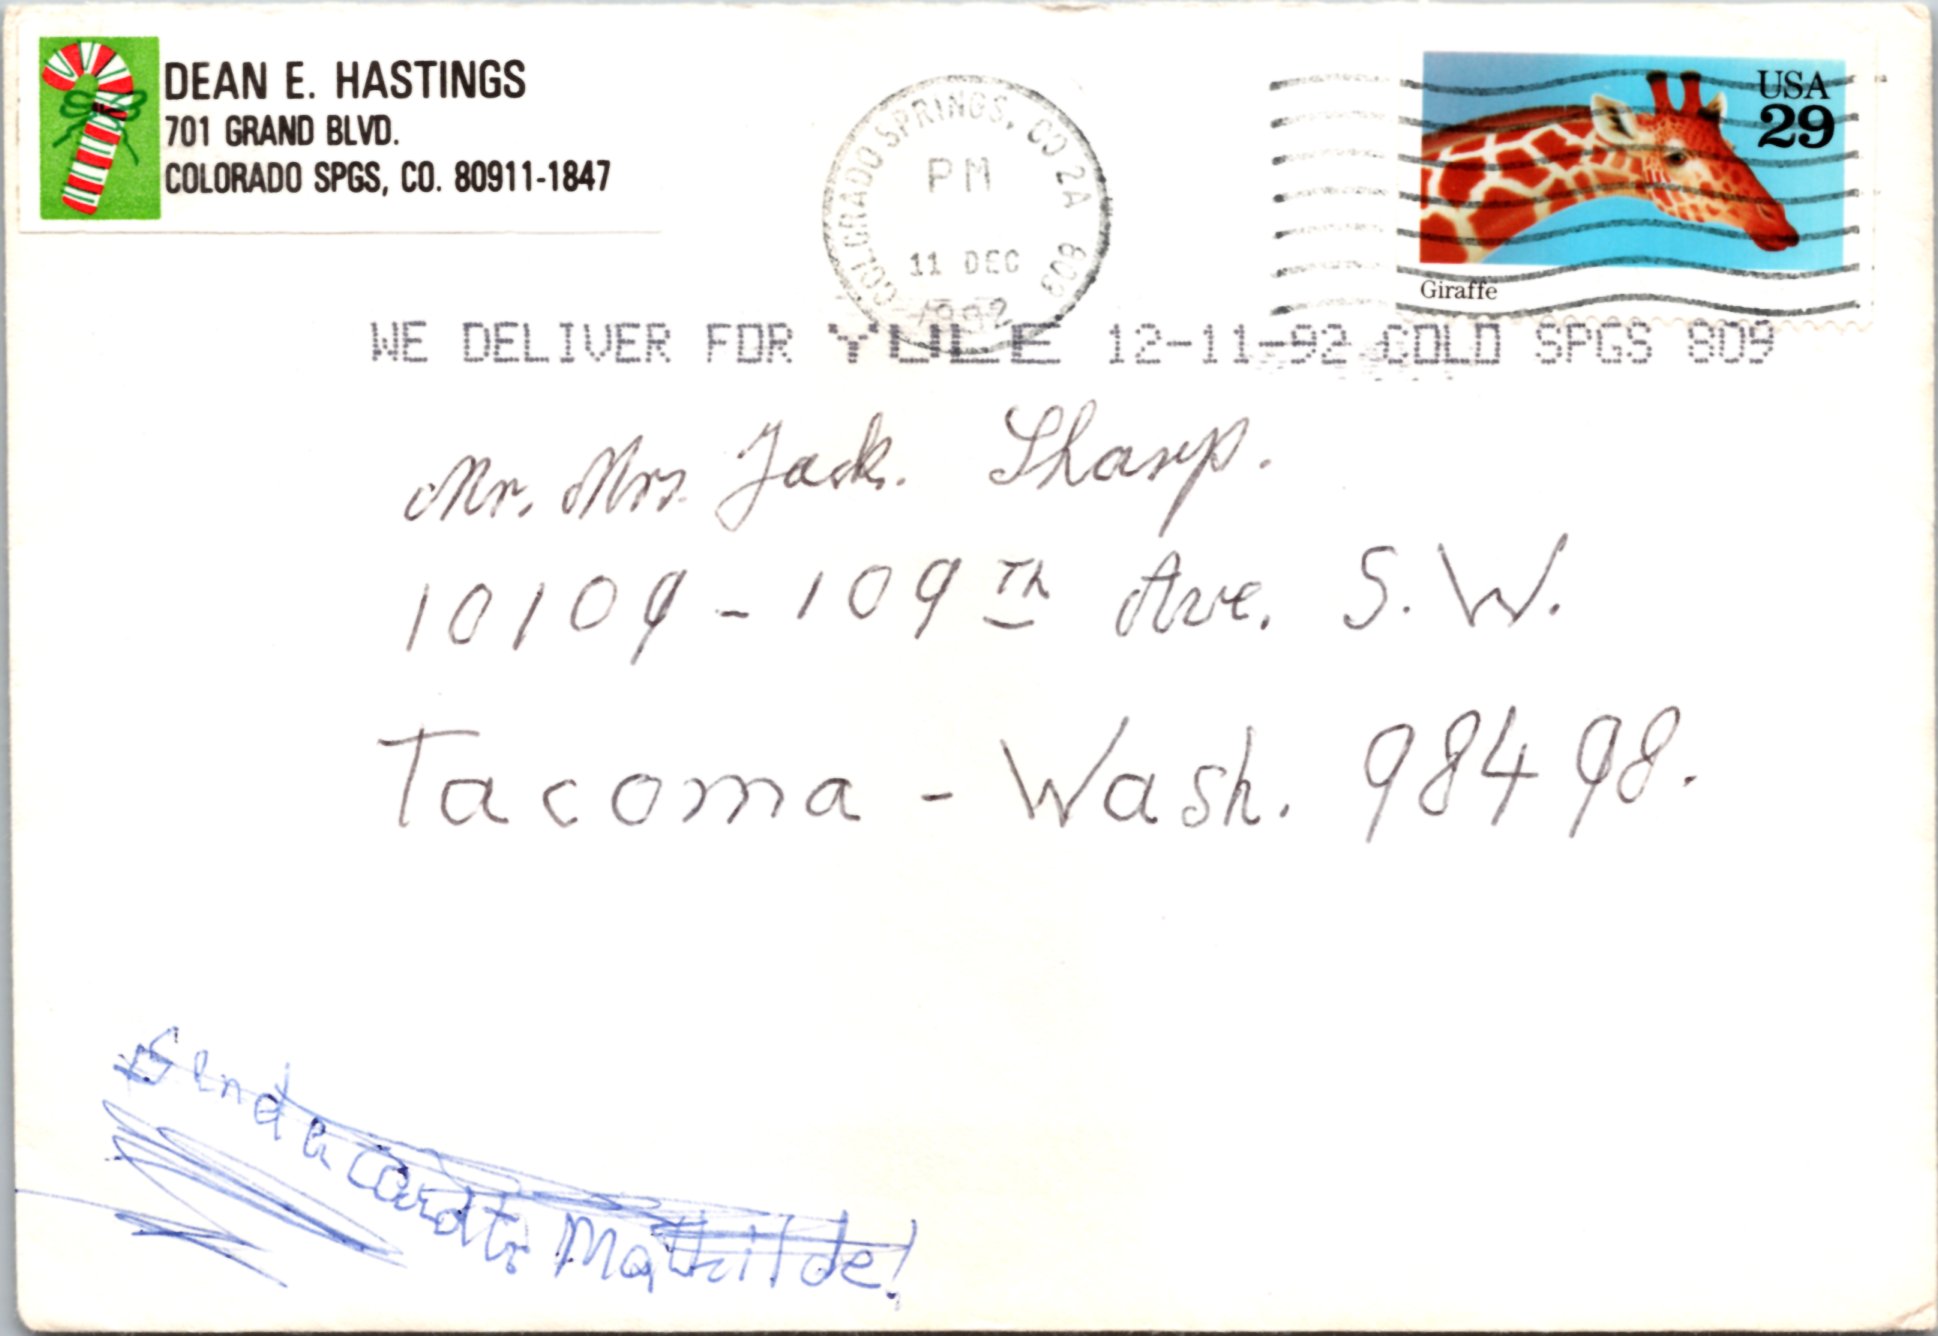 DEAN E. HASTINGS
701 GRAND BLVD.
COLORADO SPGS, CO. 80911-1847
COLORADO SPRINGS, CO 2A 809
PM
11 DEC
1992
USA
29
Giraffe
WE DELIVER FOR YULE 12-11-92 COLO SPGS 809
Mr. Mrs. Jack. Sharp.
10109 - 109 Th Ave. S. W.
Tacoma - Wash. 98498.
Send a card to Mathilde!